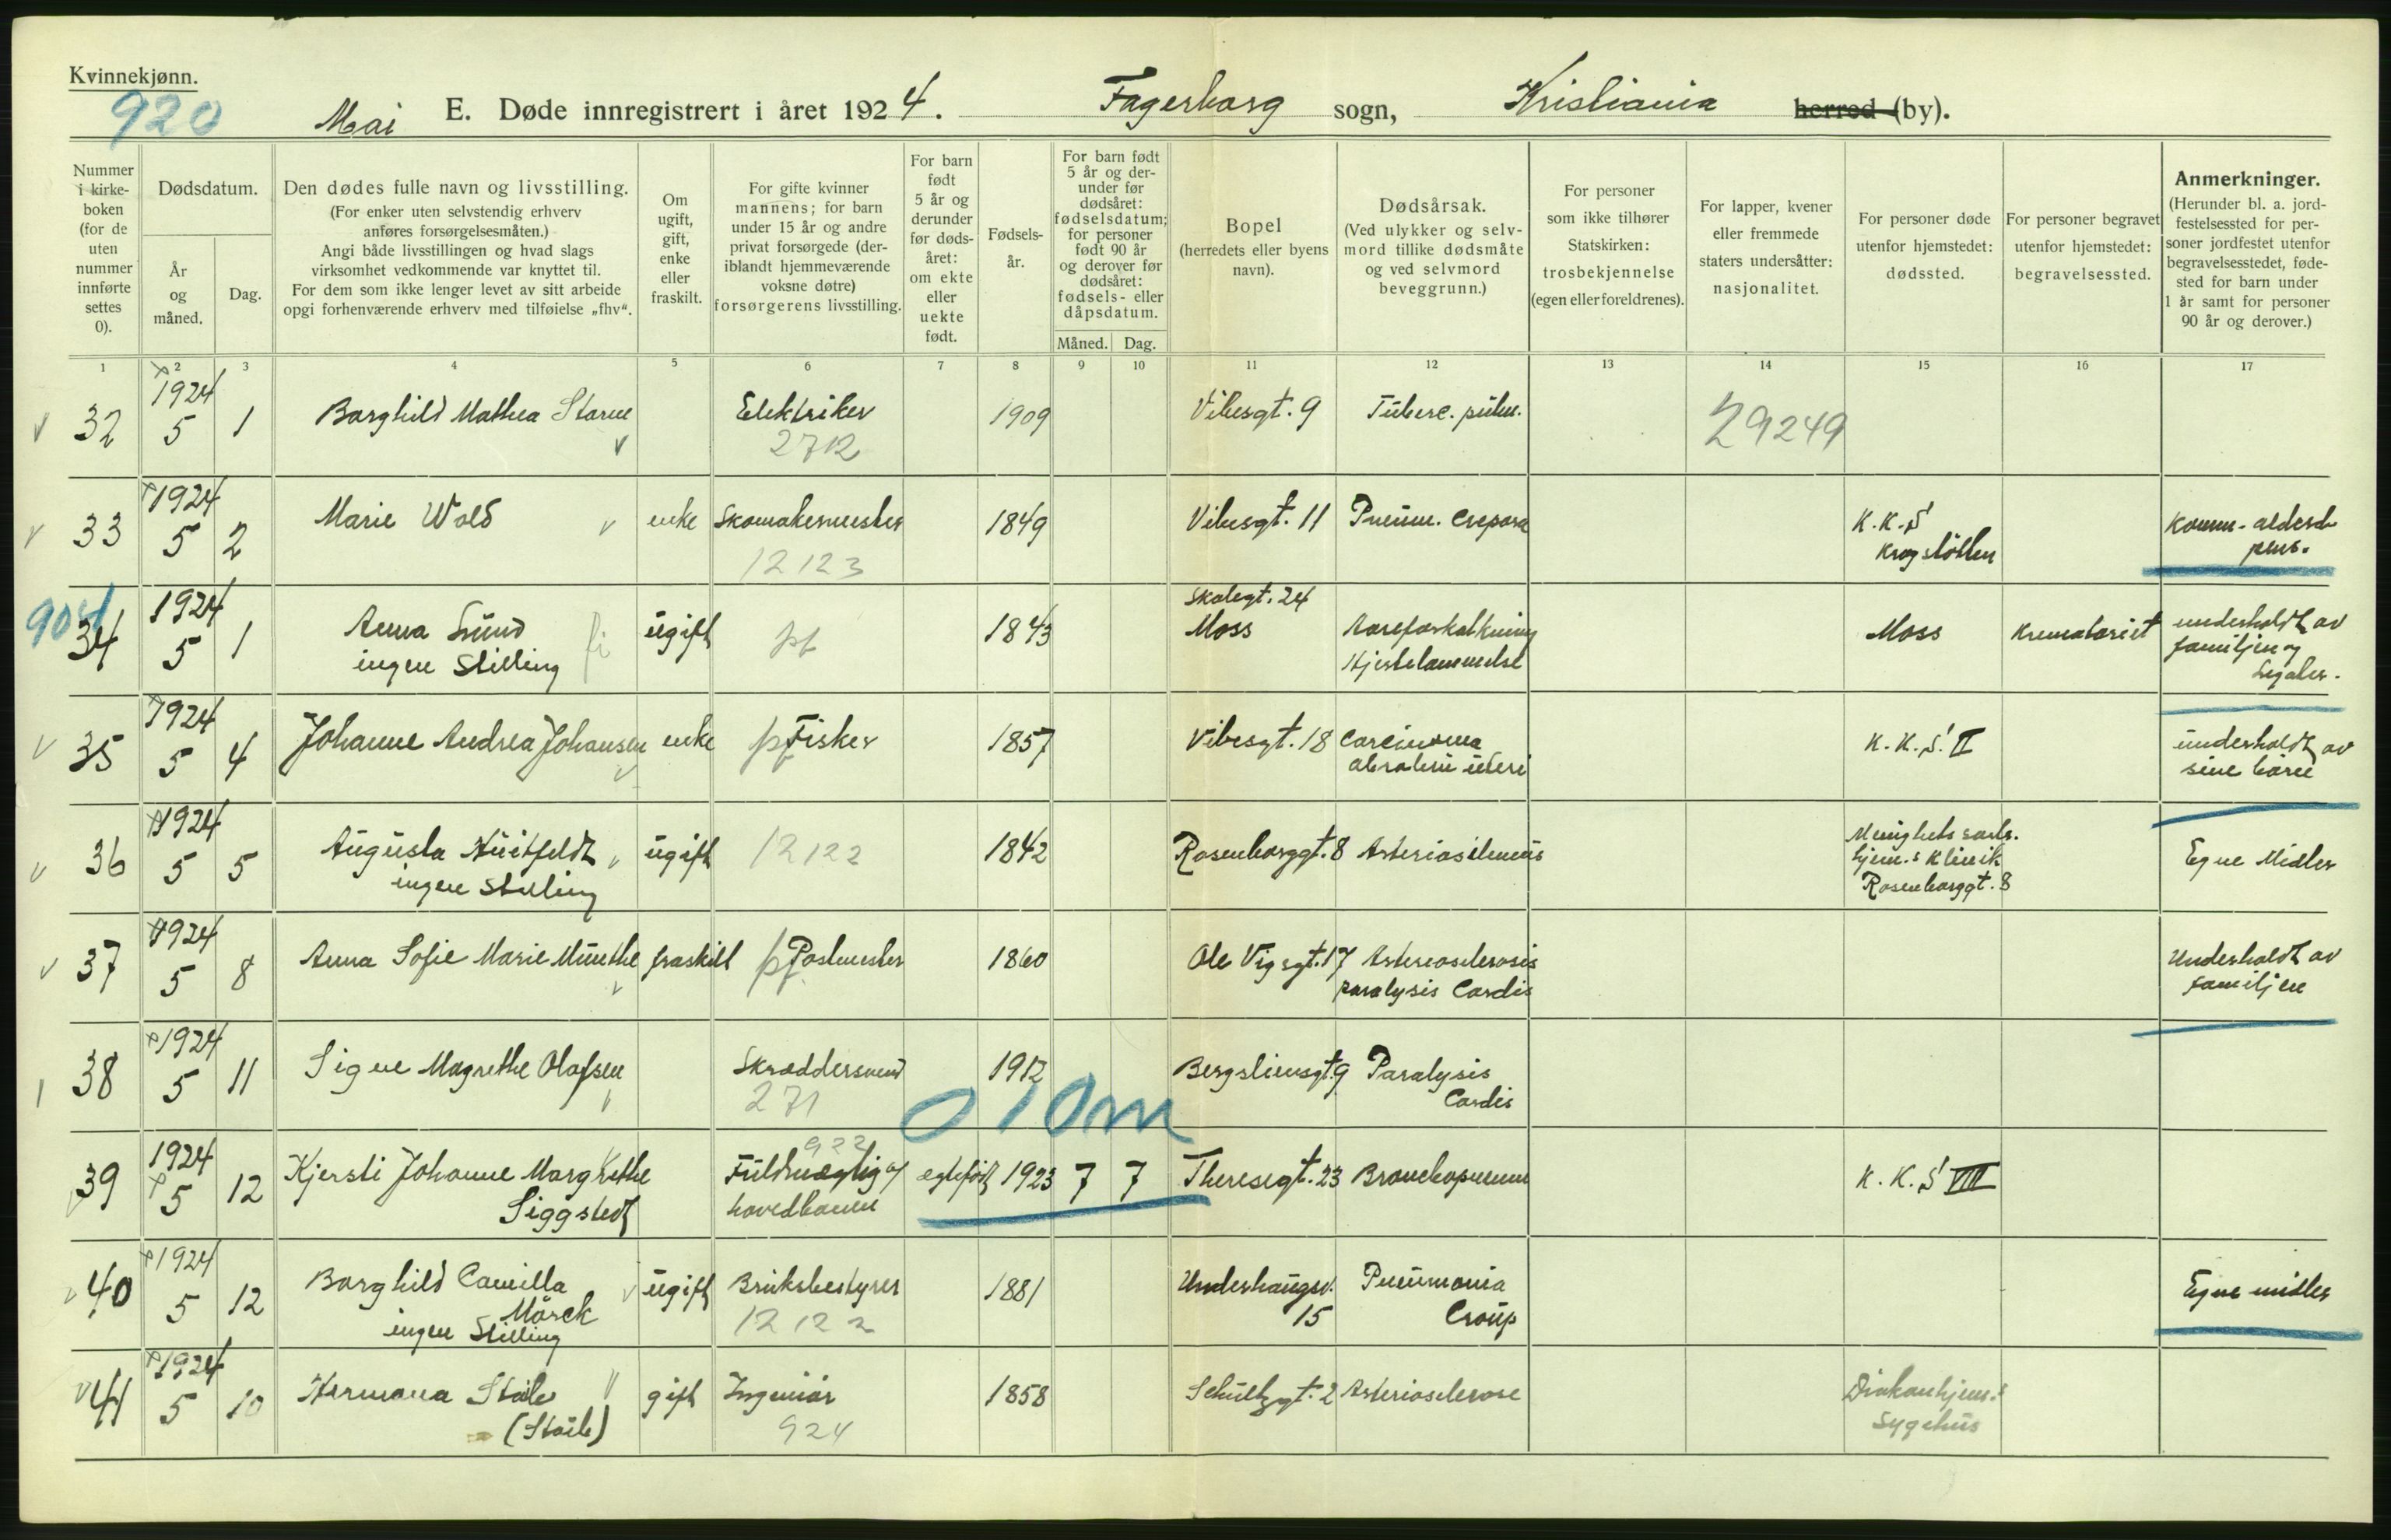 Kvinnekjønn.
920
Mai E. Døde innregistrert i året 1924. Fagerborg sogn, Kristiania herred (by).
Nummer i kirke-boken (for de uten nummer innførte settes 0).
Dødsdatum.
År og måned.
Dag.
Den dødes fulle navn og livsstilling.
(For enker uten selvstendig erhverv anføres forsørgelsesmåten.)
Angi både livsstillingen og hvad slags virksomhet vedkommende var knyttet til.
For dem som ikke lenger levet av sitt arbeide opgi forhenværende erhverv med tilføielse „fhv“.
Om ugift, gift, enke eller fraskilt.
For gifte kvinner mannens; for barn under 15 år og andre privat forsørgede (der-iblandt hjemmeværende voksne døtre) forsørgerens livsstilling.
For barn født 5 år og derunder før døds-året: om ekte eller uekte født.
Fødsels-år.
For barn født 5 år og der-under før dødsåret: fødselsdatum; for personer født 90 år og derover før dødsåret: fødsels- eller dåpsdatum.
Måned. Dag.
Bopel (herredets eller byens navn).
Dødsårsak.
(Ved ulykker og selv-mord tillike dødsmåte og ved selvmord beveggrunn.)
For personer som ikke tilhører Statskirken: trosbekjennelse (egen eller foreldrenes).
For lapper, kvener eller fremmede staters undersåtter: nasjonalitet.
For personer døde utenfor hjemstedet: dødssted.
For personer begravet utenfor hjemstedet: begravelsessted.
Anmerkninger.
(Herunder bl. a. jord-festelsessted for per-soner jordfestet utenfor begravelsesstedet, føde-sted for barn under 1 år samt for personer 90 år og derover.)
1 2 3 4 5 6 7 8 9 10 11 12 13 14 15 16 17
32 1924 5 1 Borghild Mathea Elektriker 2712 1909 Vibesgt. 9 Tuberc. pulm. 29249
33 1924 5 2 Marie Wold enke Skomakermester 12123 1849 Vibesgt. 11 Pneum. K.K.S. Krogstøtten Komm-
904
34 1924 5 1 Anna Lund ingen Stilling ugift 1843 Skolegt. 24 Moss Aareforkalkning Hjertelammelse Moss Krematoriet underholdt av familjen og Legater.
35 1924 5 4 Johanne Andrea Johansen enke Fisker 1857 Vibesgt. 18 Carcinoma uteri K.K.S. II underholdt av sine børn
36 1924 5 5 Augusta Huitfeldt ingen Stilling ugift 12122 1842 Rosenborggt. 8 Klinik Rosenborggt. 8 Egne Midler
37 1924 5 8 Anna Sofie Marie Munthe fraskilt Postmester 1860 Ole Vigsgt. 17 Arterioslerosis paralysis Cordis Underholdt av familjen
38 1924 5 11 Signe Magrethe Olafsen Skræddersvend 271 1912 Bergsliensgt. 9 Paralysis Cordis
010m
39 1924 5 12 Kjersti Johanne Margrethe Siggstedt 922 Fuldmægtig hovedbanen egtefødt 1923 7 7 Theresegt. 23 Bronchopneum K.K.S. VIII
40 1924 5 12 Borghild Camilla Mørck ingen Stilling ugift Bruksbestyrer 12122 1881 Underhaugsv. 15 Pneumonia Croup Egne midler
41 1924 5 10 Hermana gift Ingeniør 924 1858 Schultzgt. 2 Arteriosclerose Diakonhjem.s Sygehus